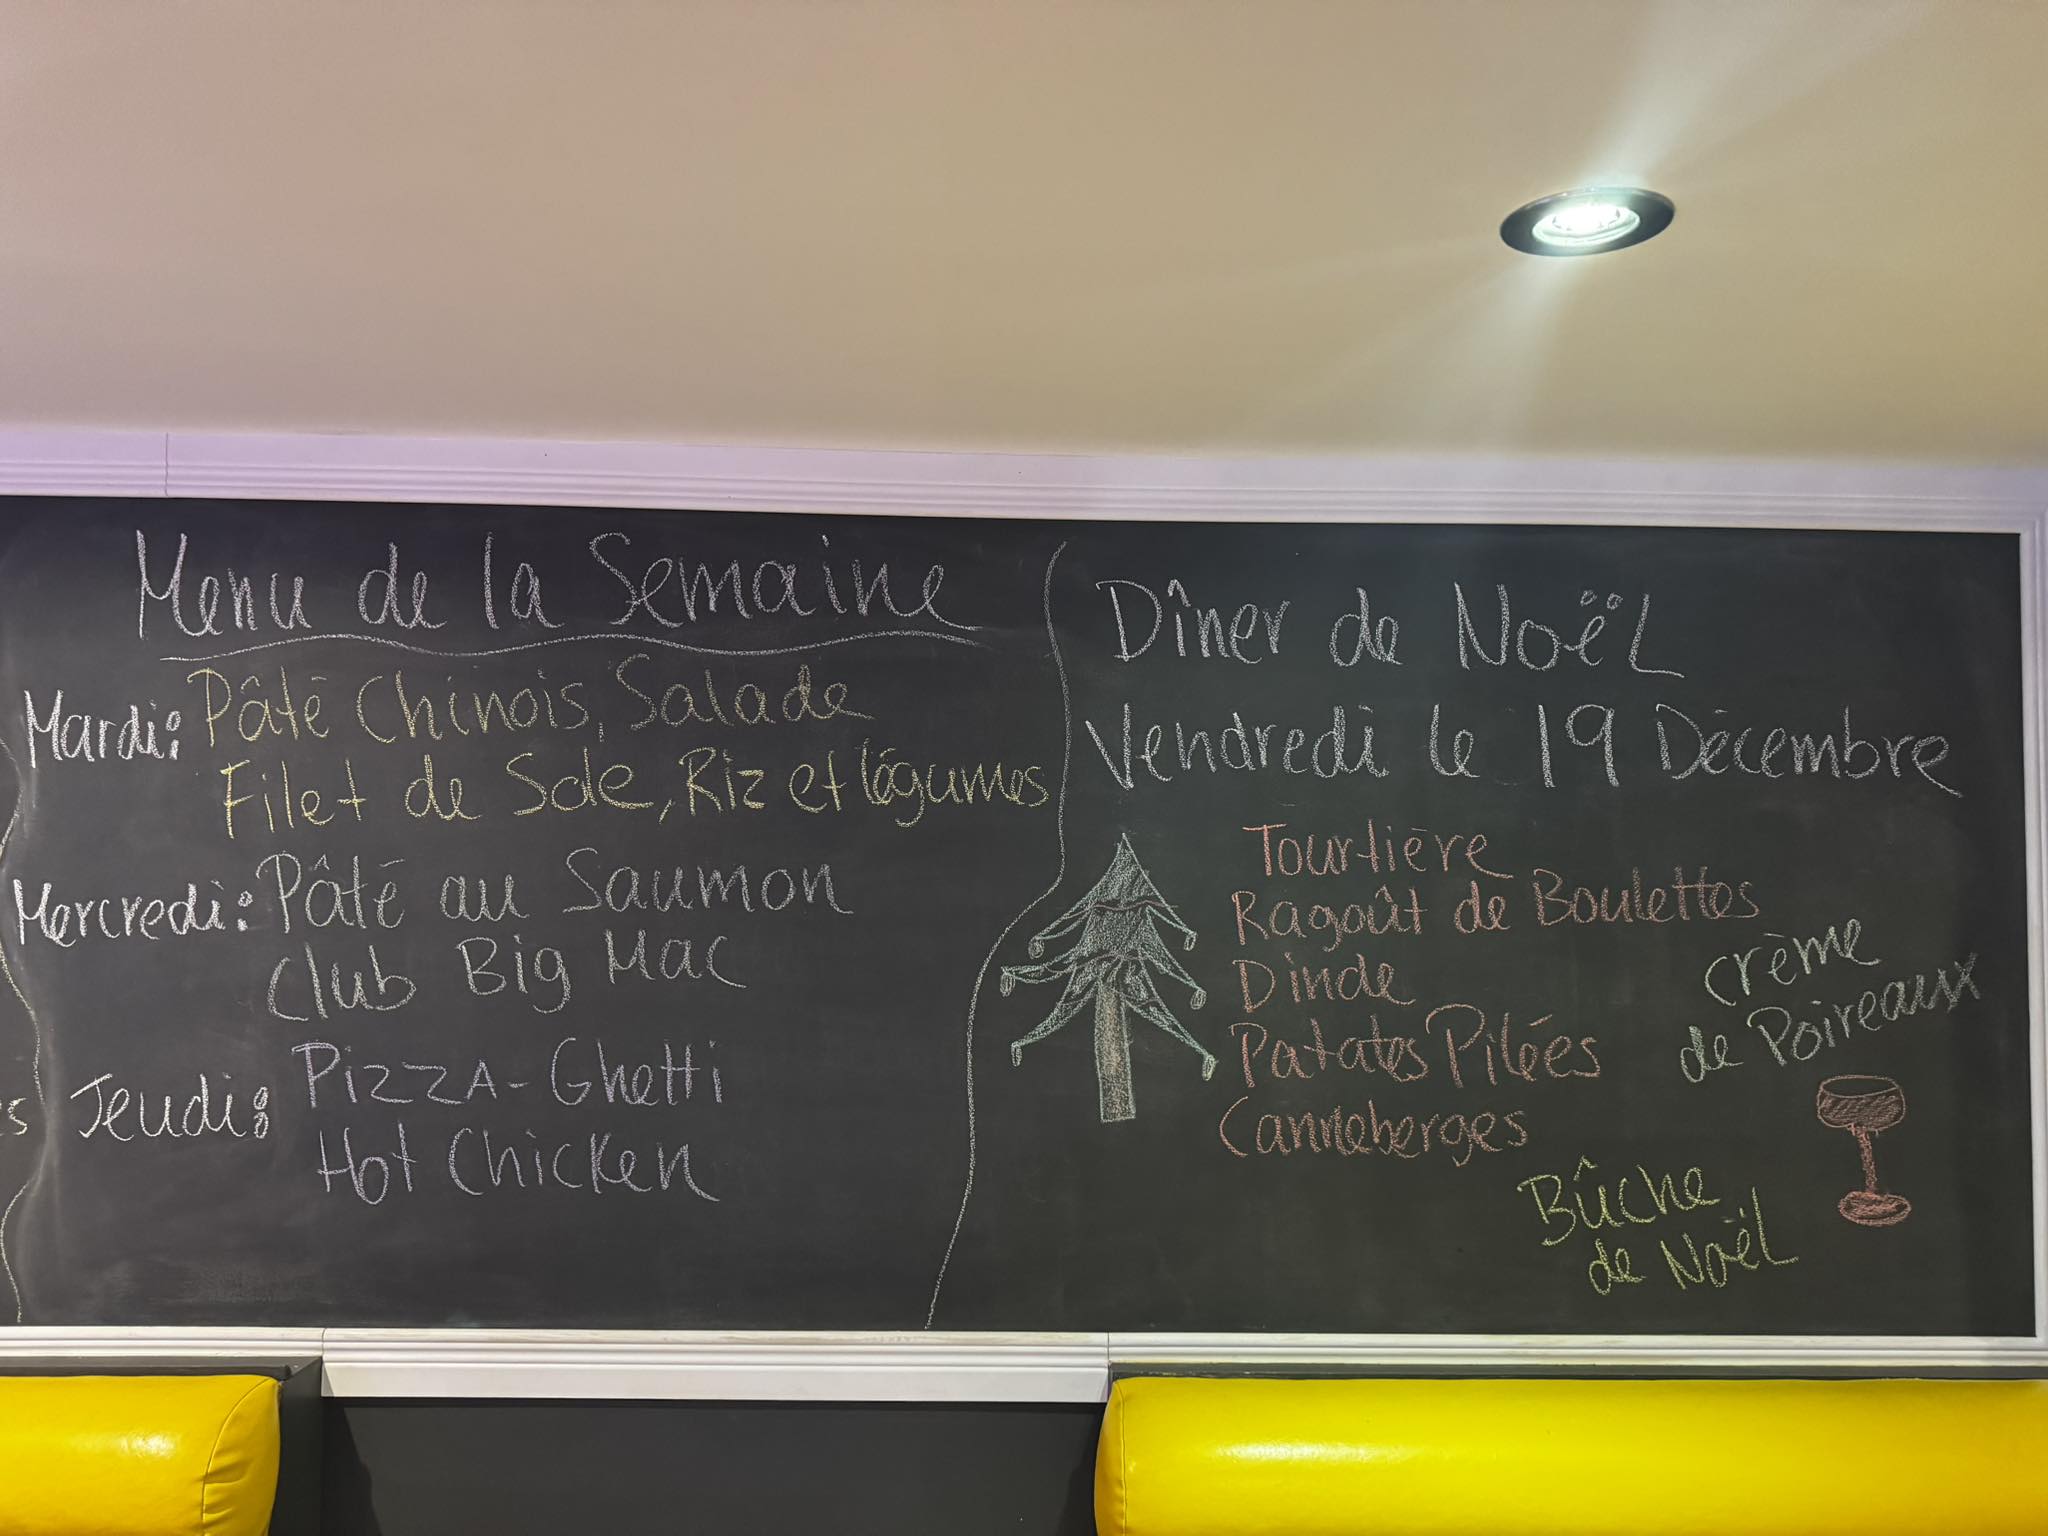 Menu de la Semaine
Mardi: Pâté Chinois, Salade
Filet de Sole, Riz et légumes
Mercredi: Pâté au Saumon
Club Big Mac
es
Jeudi: Pizza-Ghetti
Hot Chicken
Dîner de Noël
Vendredi le 19 Décembre
Tourtière
Ragoût de Boulettes
Dinde
Patates Pilées
Canneberges
crème
de Poireaux
Bûche
de Noël